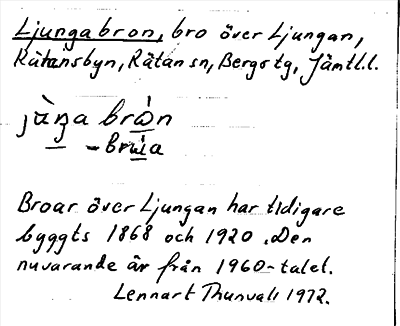 Ljungabron, bro över Ljungan,
Rätansbyn, Rätan sn, Bergs tg, Jämtl.l.
jùŋa brò̲n
Broar över Ljungan har tidigare
byggts 1868 och 1920. Den
nuvarande är från 1960-talet.
Lennart Thunvall 1972.